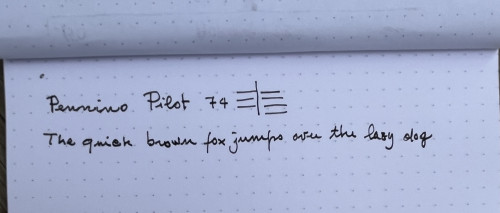 Pennino Pilot 74
The quick brown fox jumps over the lazy dog